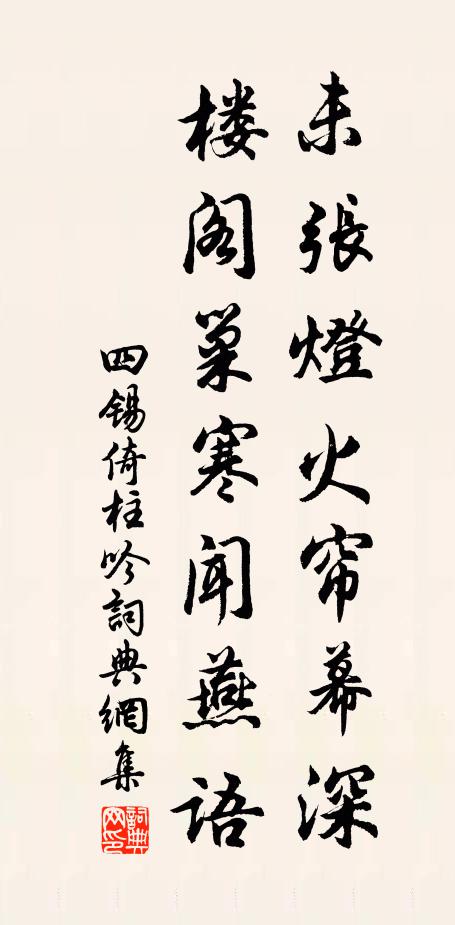 未張燈火帘幕深
楼阁巢寒闻燕语
四锡倚柱吟詞典網集
詞典網印